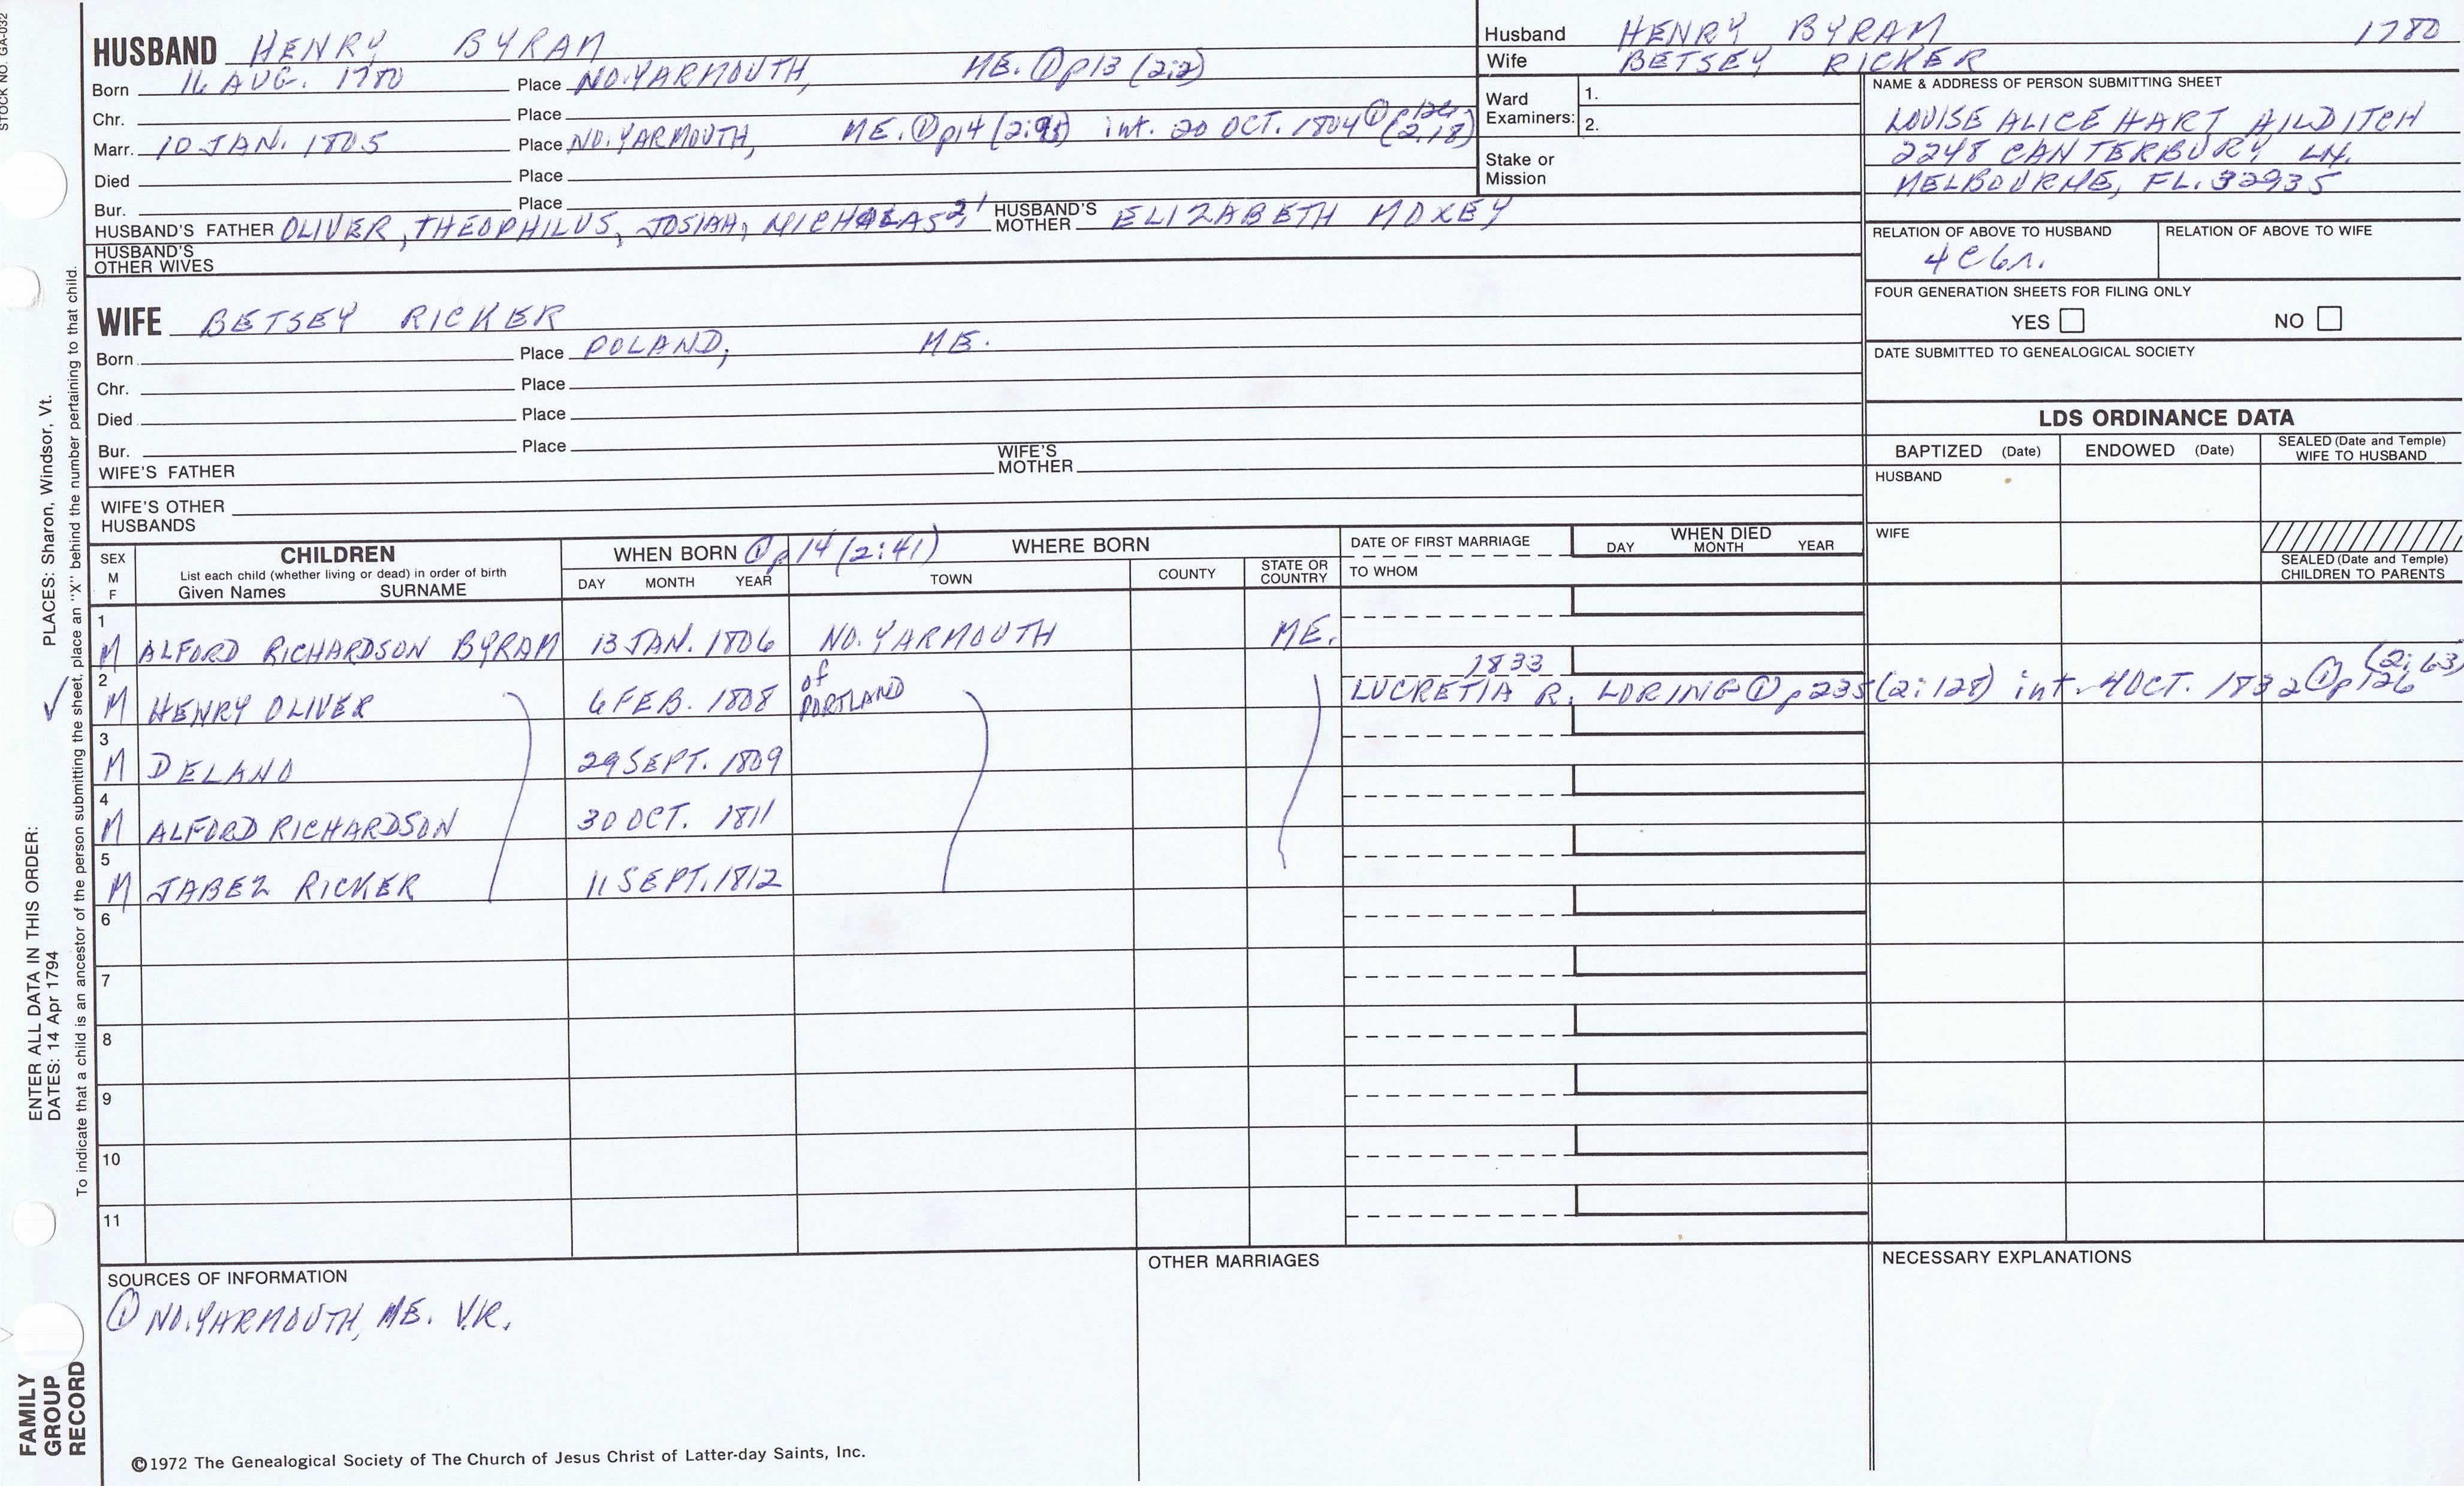 STOCK NO. GA-032
HUSBAND HENRY BYRAM
Born 16 AUG. 1780 Place NO. YARMOUTH, ME. ① p13 (2:2)
Chr. Place
Marr. 10 JAN. 1805 Place NO. YARMOUTH, ME. ① p14 (2:95) int. 20 OCT. 1804 ① p124 (2,18)
Died Place
Bur. Place
HUSBAND'S FATHER OLIVER, THEOPHILUS, JOSIAH, NICHOLAS 2, 1 HUSBAND'S MOTHER ELIZABETH MOXEY
HUSBAND'S OTHER WIVES
WIFE BETSEY RICKER
Born Place POLAND, ME.
Chr. Place
Died Place
Bur. Place
WIFE'S FATHER WIFE'S MOTHER
WIFE'S OTHER HUSBANDS
Husband HENRY BYRAM 1780
Wife BETSEY RICKER
Ward Examiners: 1.
2.
Stake or Mission
NAME & ADDRESS OF PERSON SUBMITTING SHEET
LOUISE ALICE HART HILDITCH
2248 CANTERBURY LN.
MELBOURNE, FL. 32935
RELATION OF ABOVE TO HUSBAND RELATION OF ABOVE TO WIFE
4C6r.
FOUR GENERATION SHEETS FOR FILING ONLY
YES NO
DATE SUBMITTED TO GENEALOGICAL SOCIETY
LDS ORDINANCE DATA
BAPTIZED (Date) ENDOWED (Date) SEALED (Date and Temple) WIFE TO HUSBAND
HUSBAND
WIFE
SEALED (Date and Temple) CHILDREN TO PARENTS
SEX M F
CHILDREN
List each child (whether living or dead) in order of birth
Given Names SURNAME
WHEN BORN ① p14 (2:41)
DAY MONTH YEAR
WHERE BORN
TOWN COUNTY STATE OR COUNTRY
DATE OF FIRST MARRIAGE
TO WHOM
WHEN DIED
DAY MONTH YEAR
1 M ALFORD RICHARDSON BYRAM 13 JAN. 1806 NO. YARMOUTH ME.
2 M HENRY OLIVER 6 FEB. 1808 of PORTLAND 1833 LUCRETIA R. LORING ① p235 (2:128) int. 4 OCT. 1832 ① p126 (2:63)
3 M DELANO 29 SEPT. 1809
4 M ALFORD RICHARDSON 30 OCT. 1811
5 M JABEZ RICKER 11 SEPT. 1812
6
7
8
9
10
11
SOURCES OF INFORMATION
① NO. YARMOUTH, ME. V.R.
OTHER MARRIAGES
NECESSARY EXPLANATIONS
©1972 The Genealogical Society of The Church of Jesus Christ of Latter-day Saints, Inc.
FAMILY GROUP RECORD
ENTER ALL DATA IN THIS ORDER:
DATES: 14 Apr 1794
PLACES: Sharon, Windsor, Vt.
To indicate that a child is an ancestor of the person submitting the sheet, place an "X" behind the number pertaining to that child.